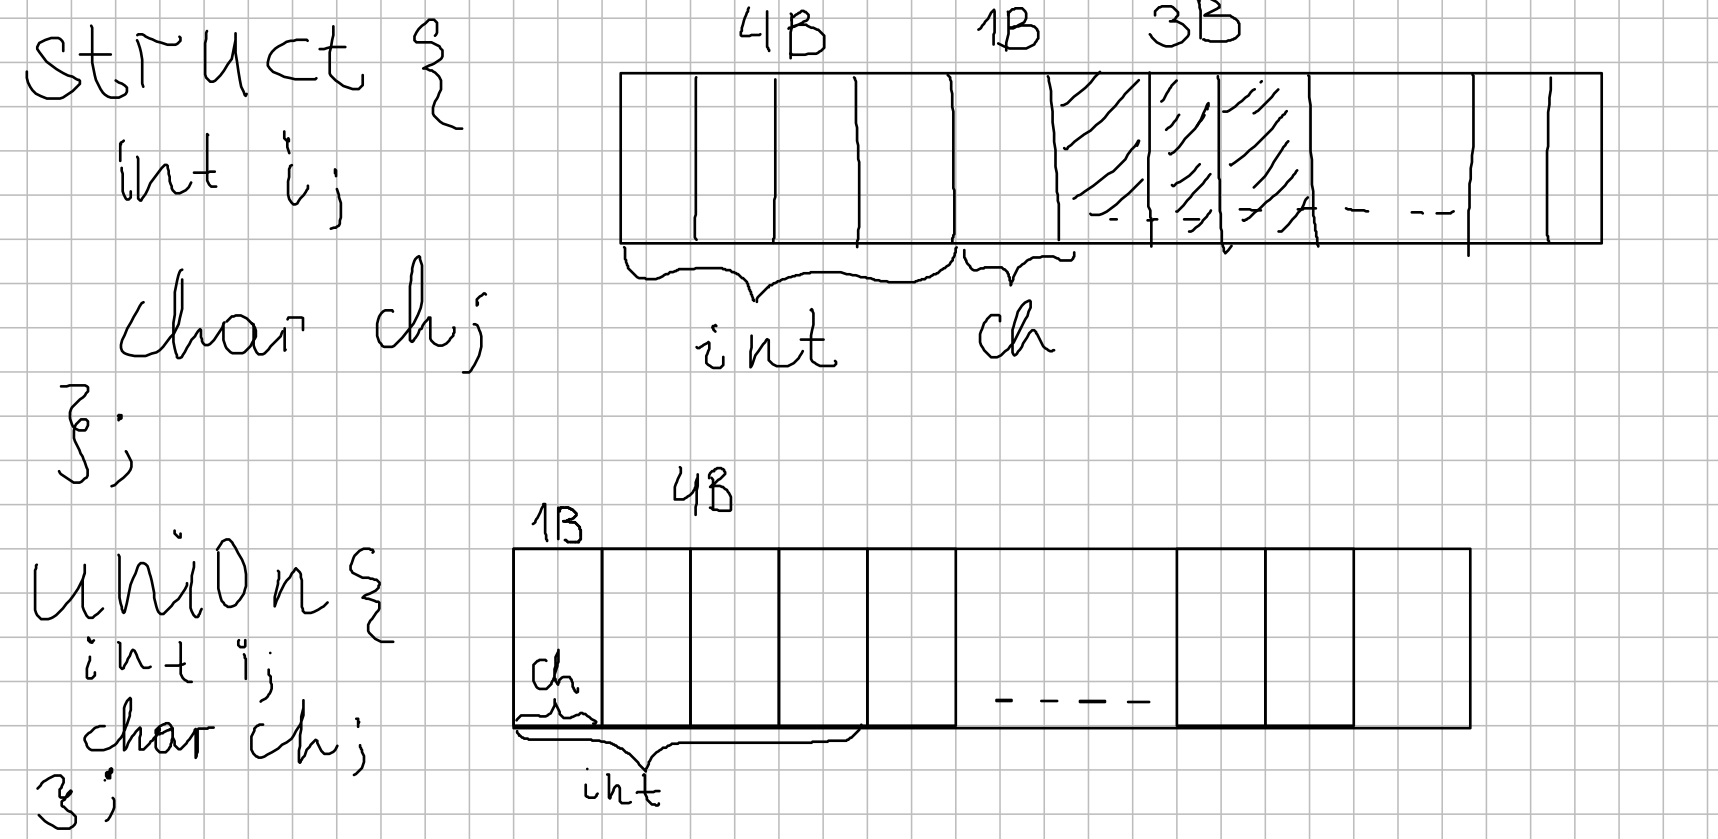 struct {
int i;
char ch;
};
4B 1B 3B
int ch
union{
int i;
char ch;
};
1B 4B
ch
int